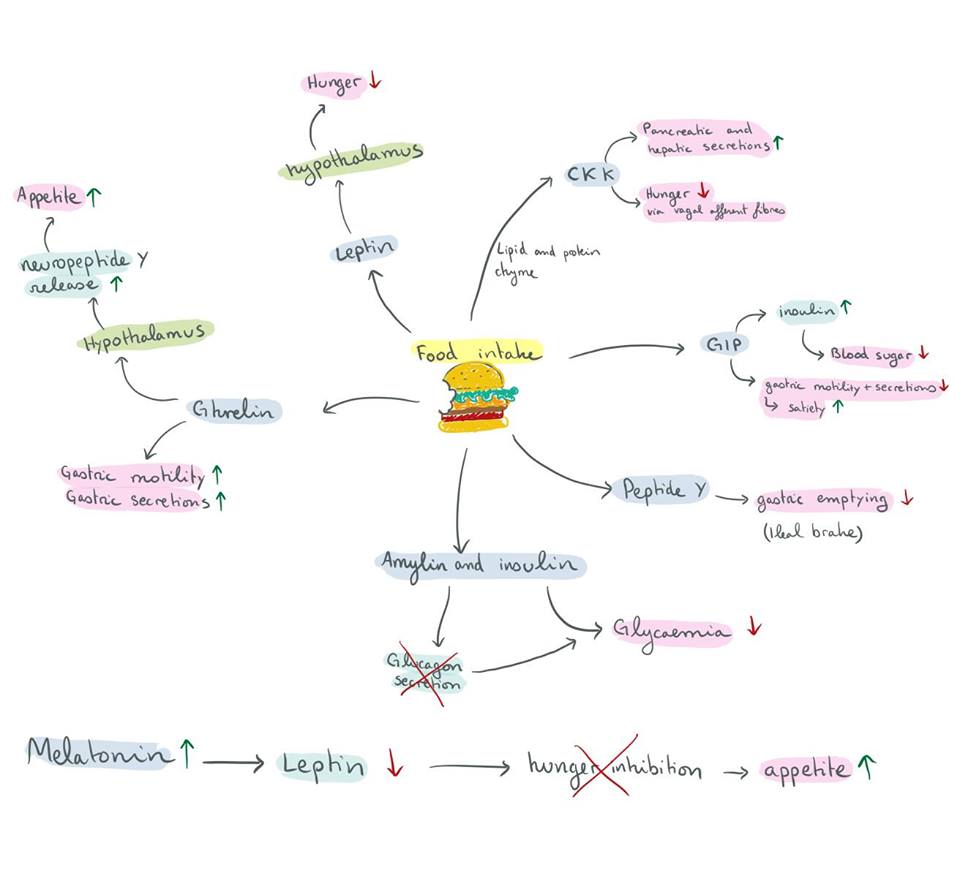 Hunger ↓
hypothalamus
Leptin
Pancreatic and
hepatic secretions ↑
CKK
Hunger ↓
via vagal afferent fibres
Lipid and protein
chyme
Appetite ↑
neuropeptide Y
release ↑
Hypothalamus
Ghrelin
Gastric motility ↑
Gastric secretions ↑
Food intake
GIP
insulin ↑
Blood sugar ↓
gastric motility + secretions ↓
↳ satiety ↑
Peptide Y
gastric emptying ↓
(Ileal brake)
Amylin and insulin
Glucagon
secretion
Glycaemia ↓
Melatonin ↑ → Leptin ↓ → hunger inhibition → appetite ↑